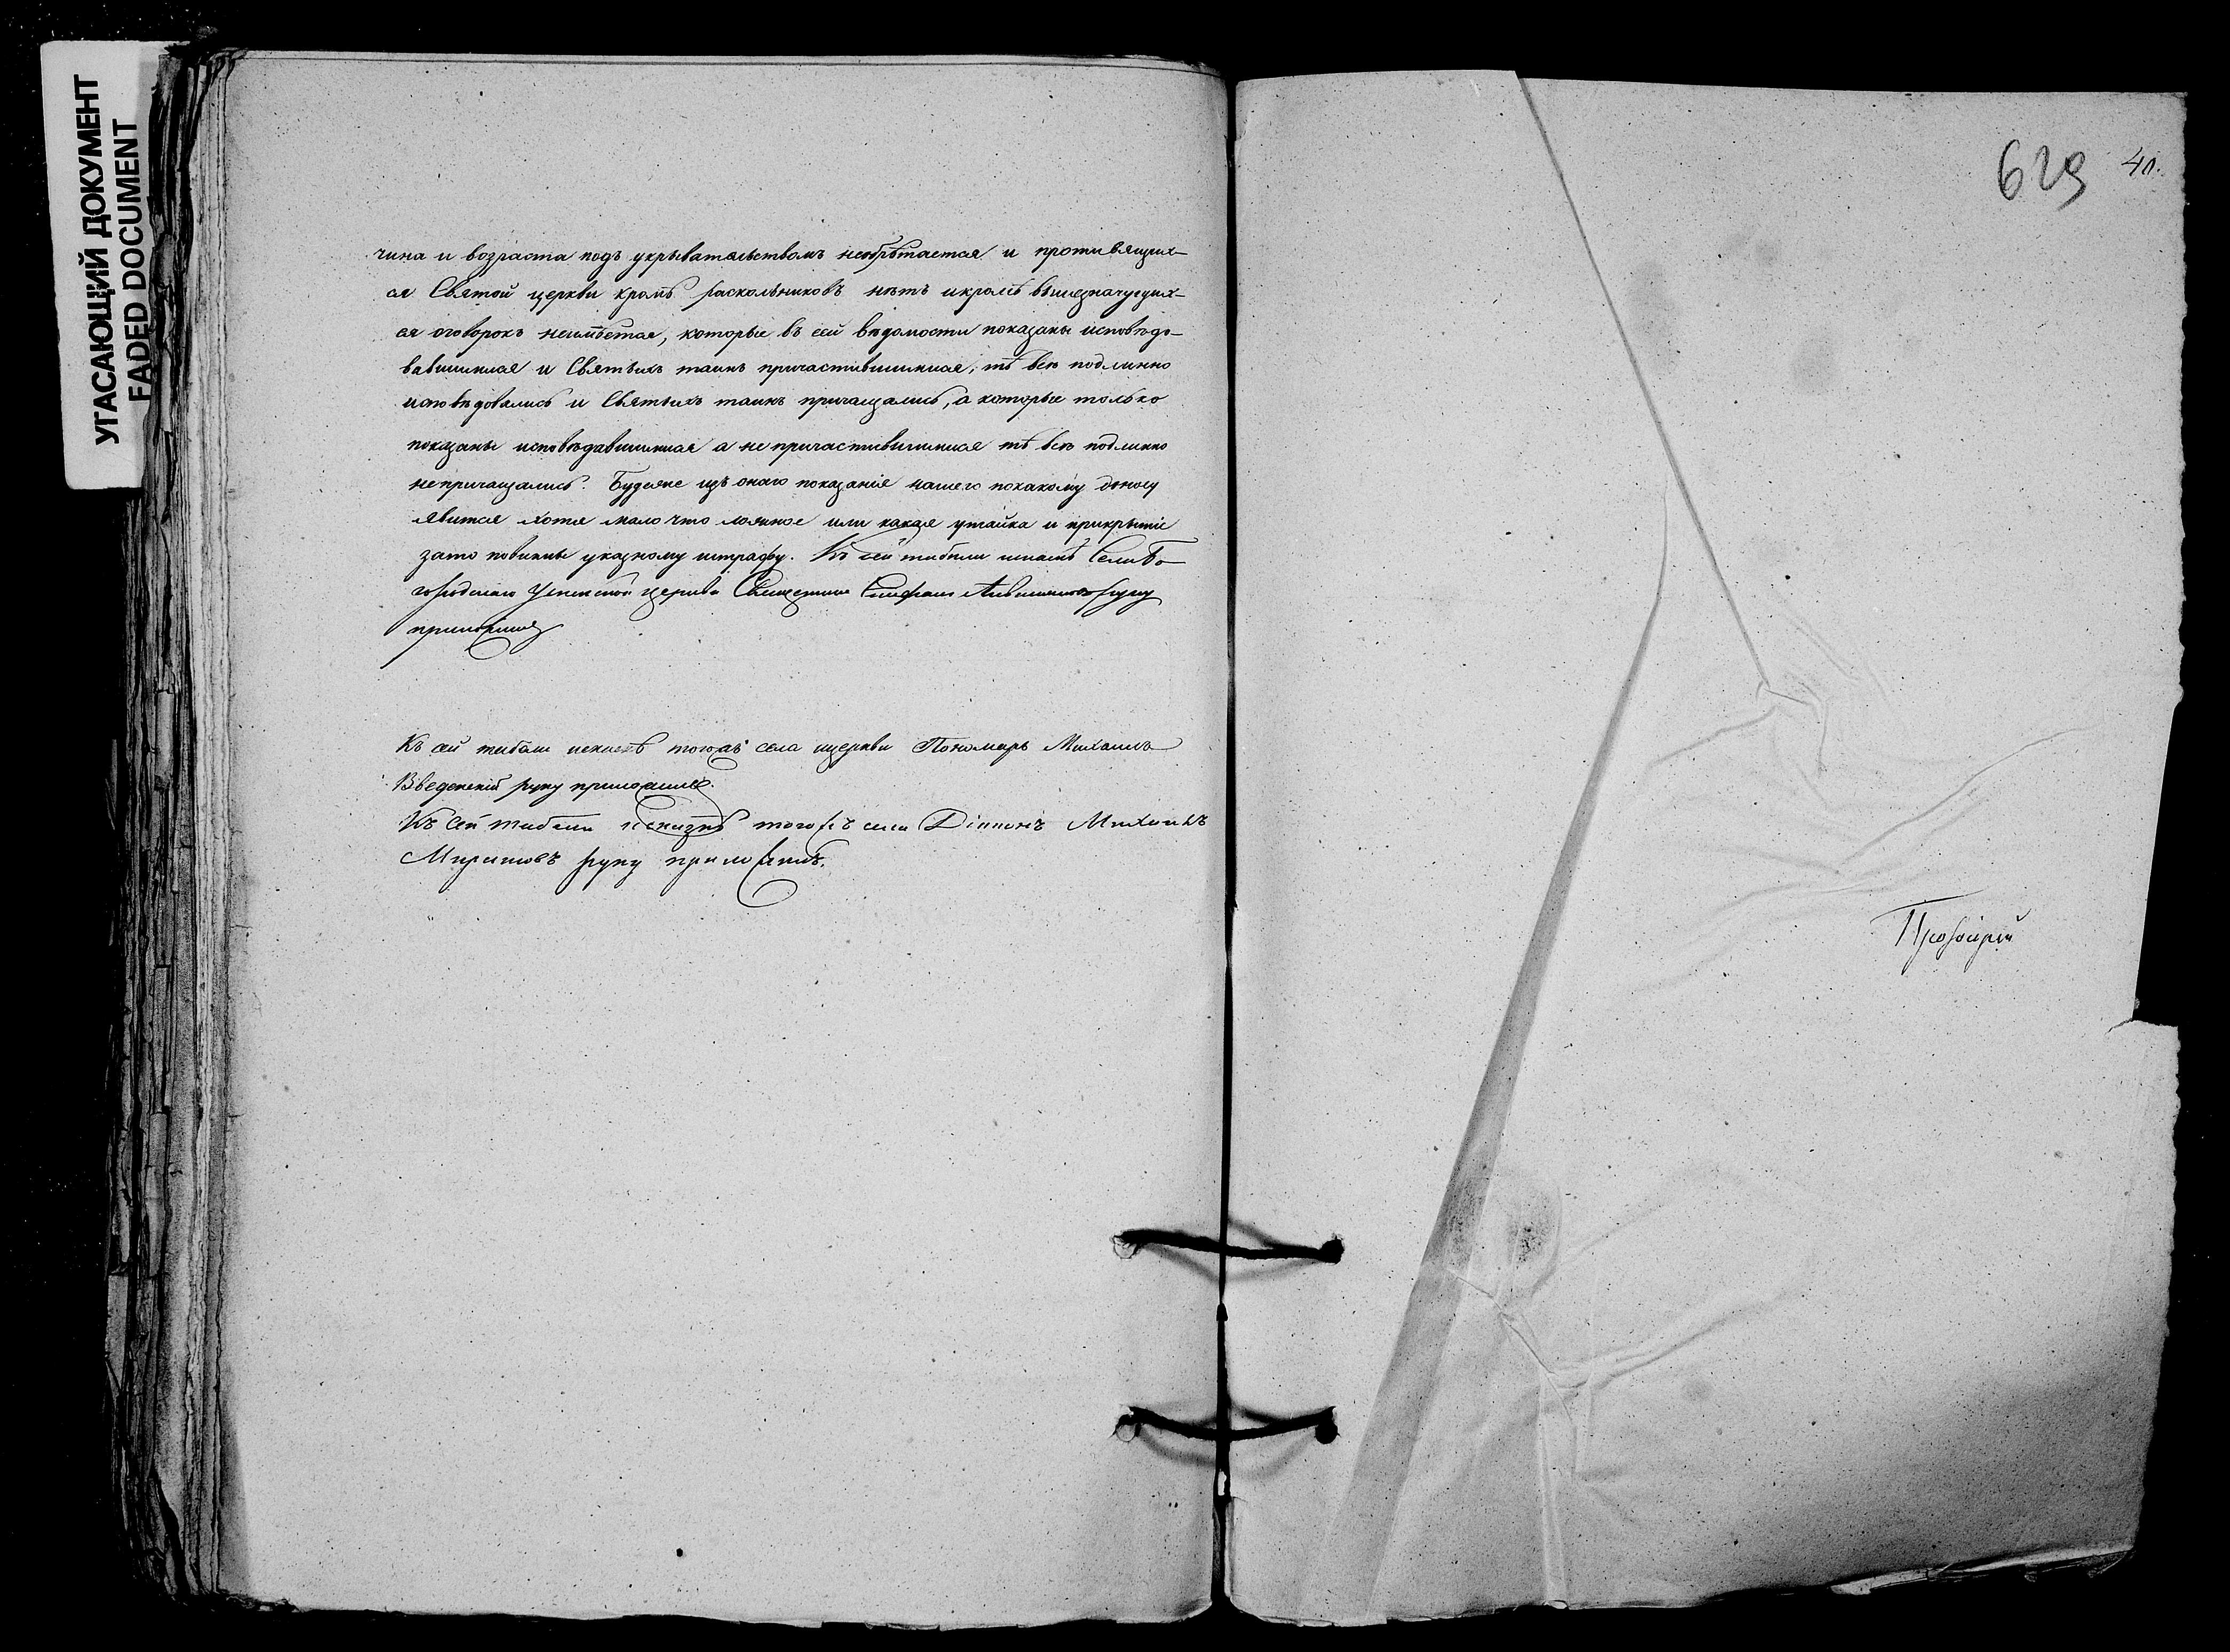 УГАСАЮЩИЙ ДОКУМЕНТ
FADED DOCUMENT
чина и возраста подъ укрывательствомъ необрѣтается и противящих-
ся Святой церкви кромѣ раскольниковъ нѣтъ икромѣ вышезначущих-
ся оговорокъ неимѣется, которые въ сей вѣдомости показаны исповѣдо-
вавшимися и Святыхъ таинъ причастившимися, тѣ всѣ подлинно
исповѣдовались и Святыхъ таинъ причащались, а которые только
показаны исповѣдавшимися а не причастившимися тѣ всѣ подлинно
непричащались. Будеже изъ онаго показанія нашего покакому доносу
явится хотя мало что ложное или какая утайка и прикрытіе
зато повинны указному штрафу. Къ сей табели Села Бо-
городскаго церкви Священникъ руку
приложилъ
Къ сей табели тогожъ села ицеркви Пономарь Михаилъ
Введенскій руку приложилъ.
Къ сей табели тогожъ села Діаконъ Михаилъ
руку приложилъ.
629 40.